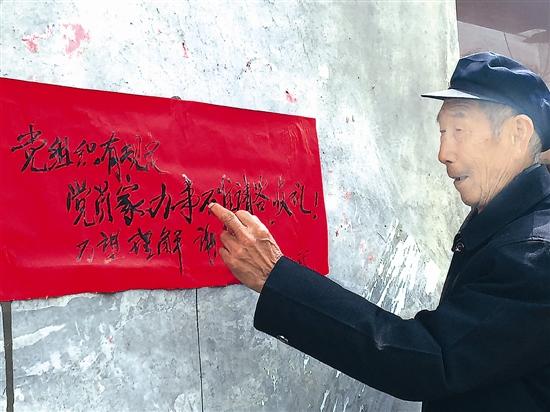 党组织有规定
党员家办事不准请客收礼!
万望理解 谢